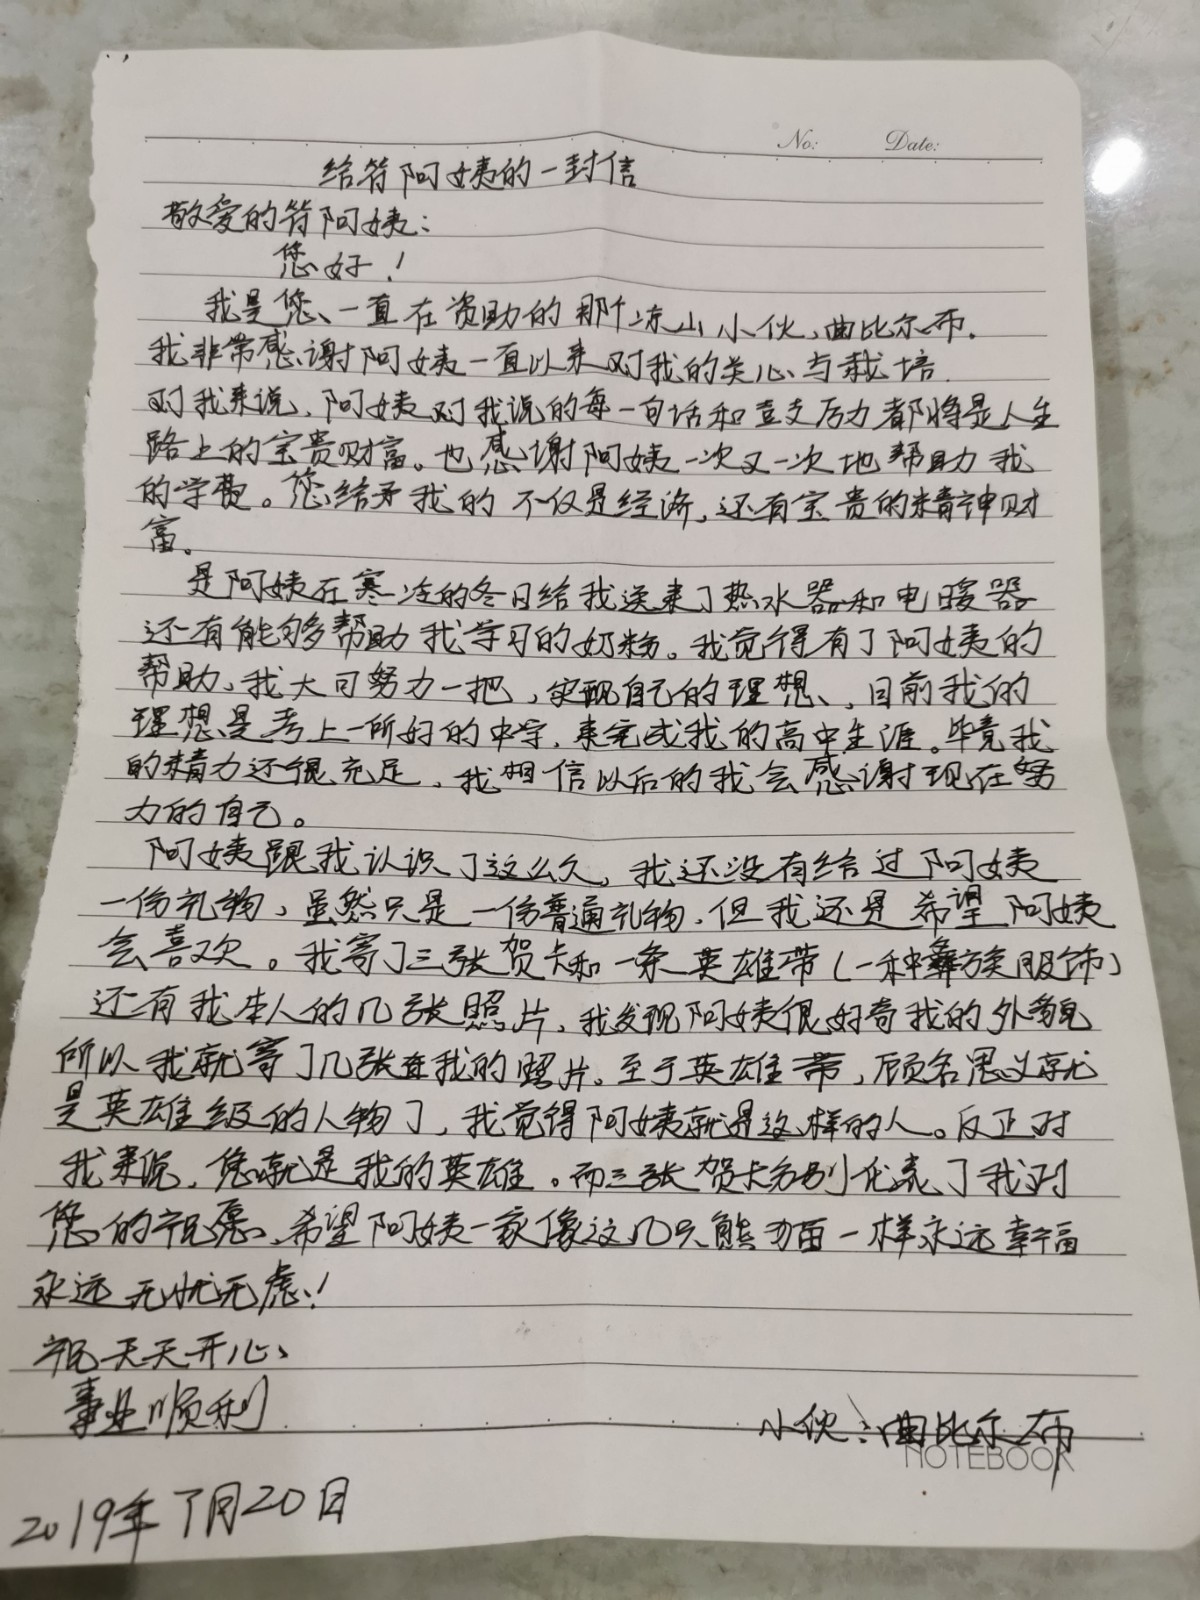 No: Date:
给符阿姨的一封信
敬爱的符阿姨：
您好！
我是您、一直在资助的那个凉山小伙，曲比尔布.
我非常感谢阿姨一直以来对我的关心与栽培.
对我来说，阿姨对我说的每一句话和支力都将是人生
路上的宝贵财富。也感谢阿姨一次又一次地帮助我
的学费。您给予我的不仅是经济，还有宝贵的精神财
富。
是阿姨在寒冷的冬日给我送来了热水器和电暖器
还有能够帮助我学习的奶粉。我觉得有了阿姨的
帮助，我大可努力一把，实现自己的理想、，目前我的
理想是考上一所好的中学，来完成我的高中生涯。毕竟我
的精力还很充足，我相信以后的我会感谢现在努
力的自己。
阿姨跟我认识了这么久，我还没有给过阿姨
一份礼物，虽然只是一份普通礼物，但我还是希望阿姨
会喜欢。我寄了三张贺卡和一条英雄带（一种彝族服饰）
还有我本人的几张照片，我发现阿姨很好奇我的外貌
所以我就寄了几张我的照片。至于英雄带，顾名思义就
是英雄级的人物了，我觉得阿姨就是这样的人。反正对
我来说，您就是我的英雄。而三张贺卡分别代表了我对
您的祝愿，希望阿姨一家像这几只熊猫一样永远幸福
永远无忧无虑！
祝天天开心、
事业顺利
小伙：曲比尔布
NOTEBOOK
2019年7月20日